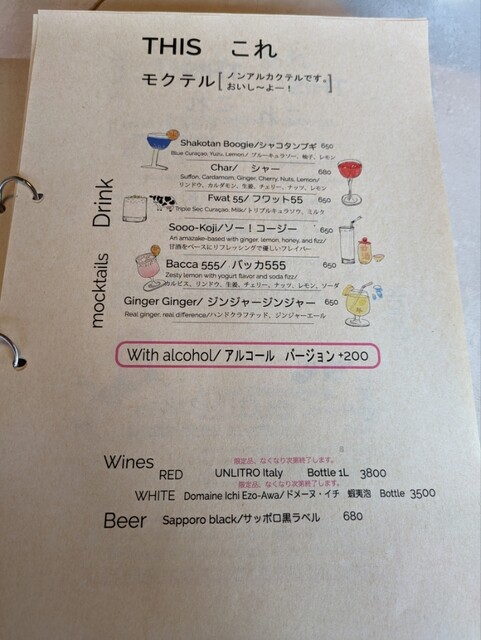 THIS これ
モクテル[ノンアルカクテルです。
おいし〜よー！]
mocktails Drink
Shakotan Boogie/シャコタンブギ 650
Blue Curaçao, Yuzu, Lemon/ ブルーキュラソー、柚子、レモン
Char/ シャー 680
Suffon, Cardamom, Ginger, Cherry, Nuts, Lemon/
リンドウ、カルダモン、生姜、チェリー、ナッツ、レモン
Fwat 55/ フワット55 650
Triple Sec Curaçao, Milk/トリプルキュラソウ、ミルク
Sooo-Koji/ソー！コージー 650
An amazake-based with ginger, lemon, honey, and fizz/
甘酒をベースにリフレッシングで優しいフレイバー
Bacca 555/ バッカ555 650
Zesty lemon with yogurt flavor and soda fizz/
カルピス、リンドウ、生姜、チェリー、ナッツ、レモン、ソーダ
Ginger Ginger/ ジンジャージンジャー 650
Real ginger, real difference/ハンドクラフテッド、ジンジャーエール
With alcohol/アルコール バージョン +200
Wines
限定品、なくなり次第終了します。
RED UNLITRO Italy Bottle 1L 3800
限定品、なくなり次第終了します。
WHITE Domaine Ichi Ezo-Awa/ドメーヌ・イチ 蝦夷泡 Bottle 3500
Beer Sapporo black/サッポロ黒ラベル 680